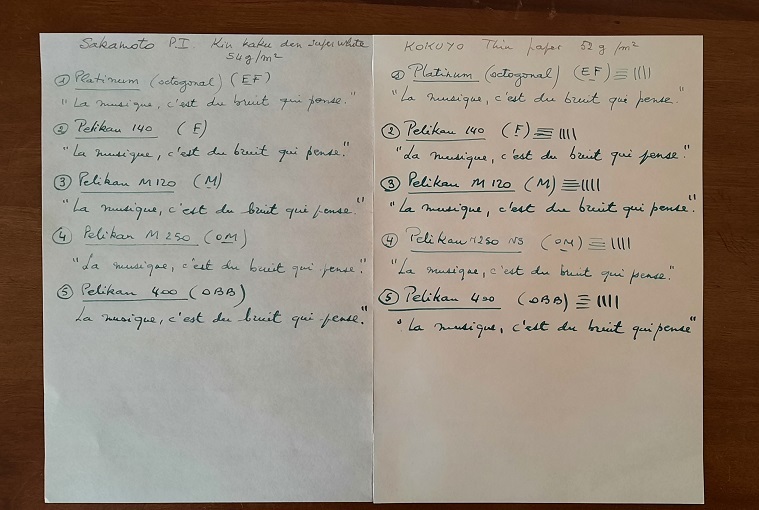 Sakamoto P.I. Kin kaku den super white
54 g/m²
① Platinum (octogonal) (EF)
"La musique, c'est du bruit qui pense."
② Pelikan 140 (F)
"La musique, c'est du bruit qui pense."
③ Pelikan M120 (M)
"La musique, c'est du bruit qui pense."
④ Pelikan M250 (OM)
"La musique, c'est du bruit qui pense."
⑤ Pelikan 400 (OBB)
La musique, c'est du bruit qui pense."
KOKUYO Thin paper 52 g/m²
① Platinum (octogonal) (EF)
"La musique, c'est du bruit qui pense."
② Pelikan 140 (F)
"La musique, c'est du bruit qui pense."
③ Pelikan M120 (M)
"La musique, c'est du bruit qui pense."
④ Pelikan M250 NS (OM)
"La musique, c'est du bruit qui pense."
⑤ Pelikan 400 (OBB)
"La musique, c'est du bruit qui pense"